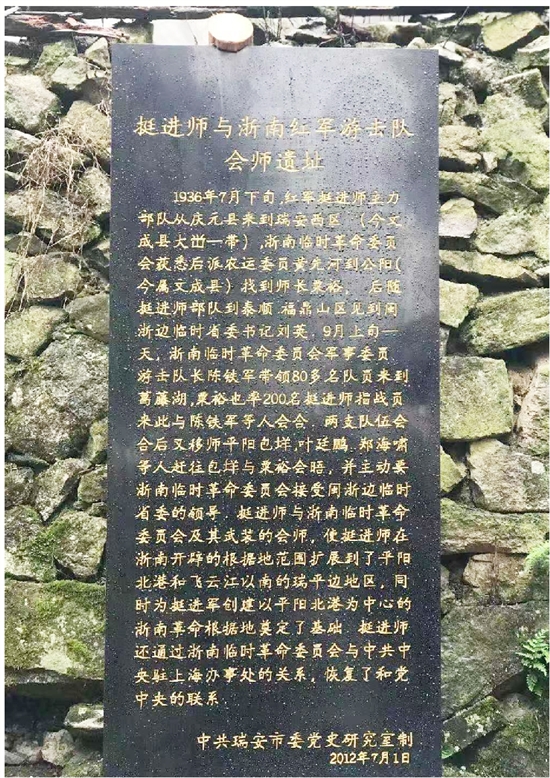 挺进师与浙南红军游击队
会师遗址
1936年7月下旬,红军挺进师主力
部队从庆元县来到瑞安西区 (今文
成县大峃一带),浙南临时革命委员
会获悉后派农运委员黄先河到公阳(
今属文成县)找到师长粟裕, 后随
挺进师部队到泰顺.福鼎山区见到闽
浙边临时省委书记刘英。9月上旬一
天,浙南临时革命委员会军事委员
游击队长陈铁军带领80多名队员来到
葛藤湖,粟裕也率200名挺进师指战员
来此与陈铁军等人会合. 两支队伍会
合后又移师平阳包垟,叶廷鹏.郑海啸
等人赶往包垟与粟裕会晤, 并主动要
浙南临时革命委员会接受闽浙边临时
省委的领导. 挺进师与浙南临时革命
委员会及其武装的会师, 使挺进师在
浙南开辟的根据地范围扩展到了平阳
北港和飞云江以南的瑞平边地区, 同
时为挺进军创建以平阳北港为中心的
浙南革命根据地奠定了基础. 挺进师
还通过浙南临时革命委员会与中共中
央驻上海办事处的关系, 恢复了和党
中央的联系.
中共瑞安市委党史研究室制
2012年7月1日